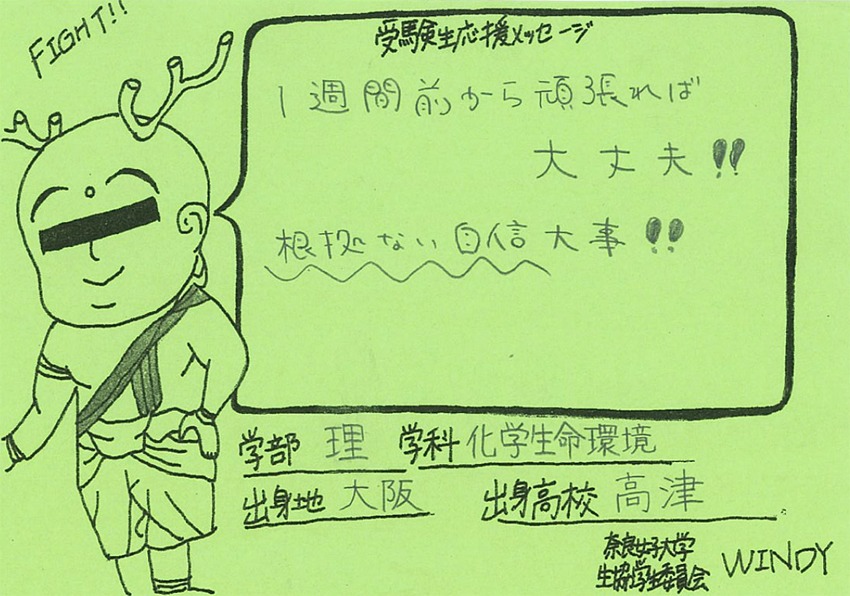 FIGHT!!
受験生応援メッセージ
1週間前から頑張れば
大丈夫!!
根拠ない自信大事!!
学部 理 学科 化学生命環境
出身地 大阪 出身高校 高津
奈良女子大学
生協学生委員会 WINDY